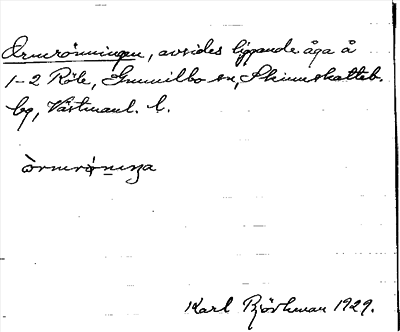 Ormrönningen, avsides liggande äga å
1-2 Röle, Gunnilbo sn, Skinnskatteb.
bg, Västmanl. l.
òrmrǿnıŋa
Karl Björkman 1929.